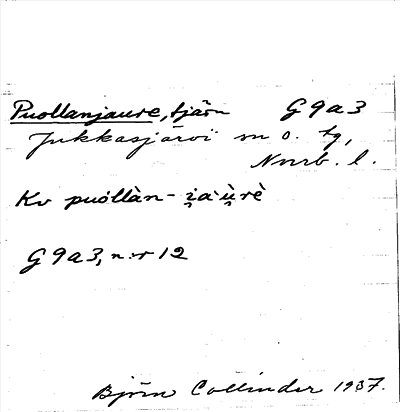 Puollanjaure, tjärn G 9 a 3
Jukkasjärvi sn o. tg,
Norrb. l.
Kv puollàn- i̯a·ù̯rè
G 9 a 3, n:r 12
Björn Collinder 1937.